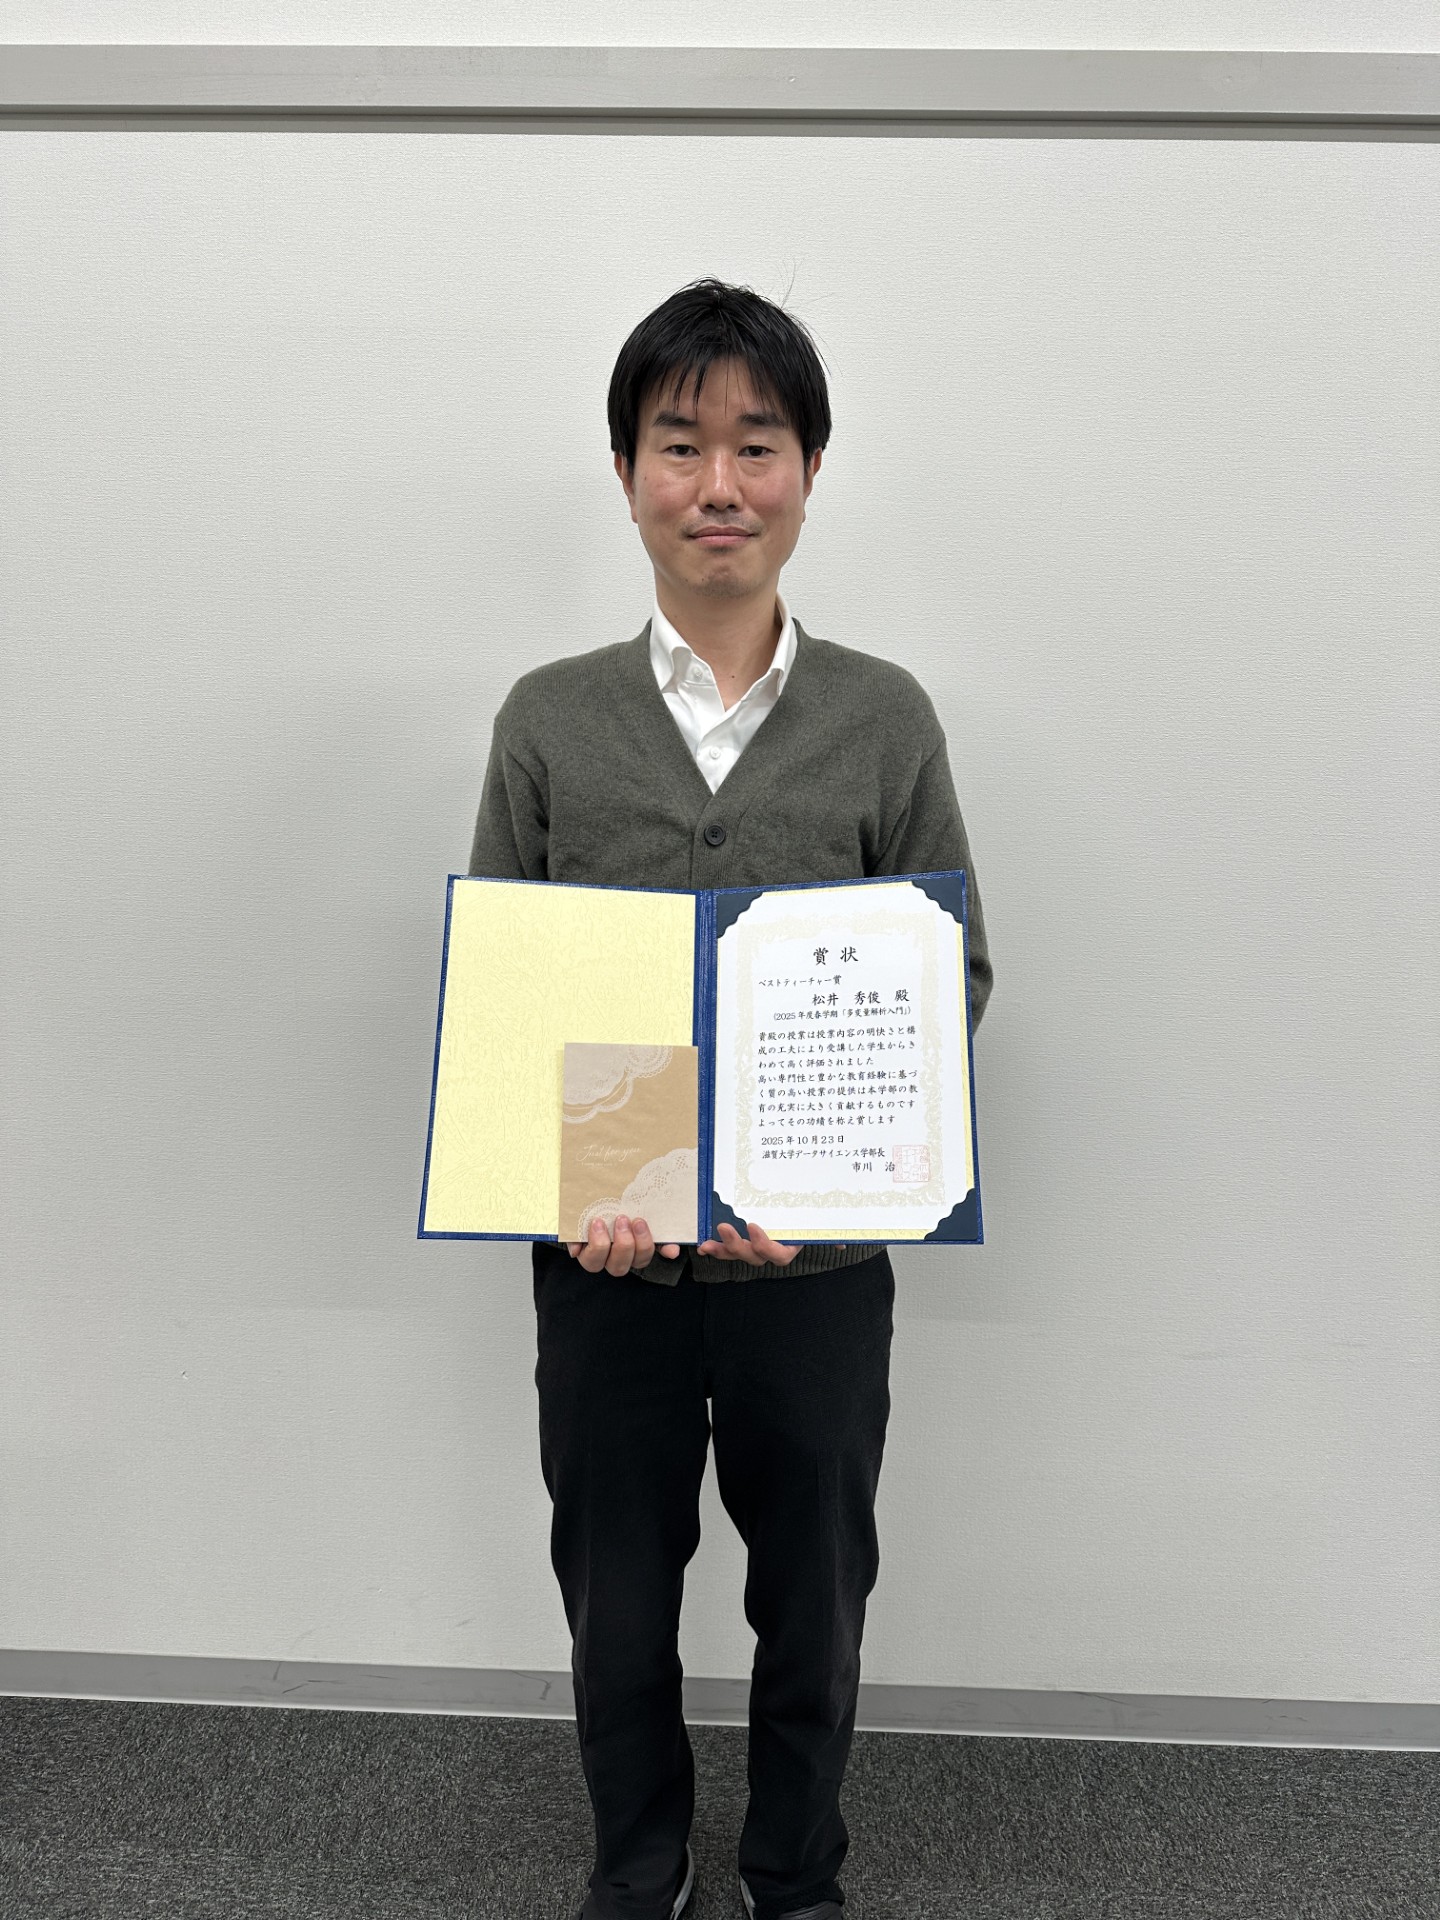 賞状
ベストティーチャー賞
松井 秀俊 殿
(2025年度春学期「多変量解析入門」)
貴殿の授業は授業内容の明快さと構
成の工夫により受講した学生からき
わめて高く評価されました
高い専門性と豊かな教育経験に基づ
く質の高い授業の提供は本学部の教
育の充実に大きく貢献するものです
よってその功績を称え賞します
2025年10月23日
滋賀大学データサイエンス学部長
市川 治
Just for you